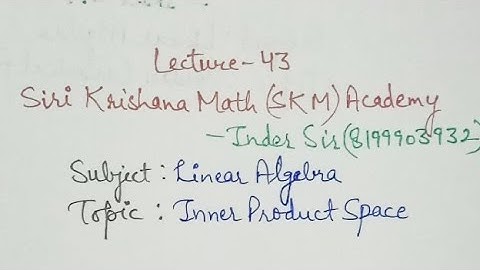 Lecture-43
Siri Krishana Math (SKM) Academy
-Inder Sir (8199903932)
Subject : Linear Algebra
Topic : Inner Product Space